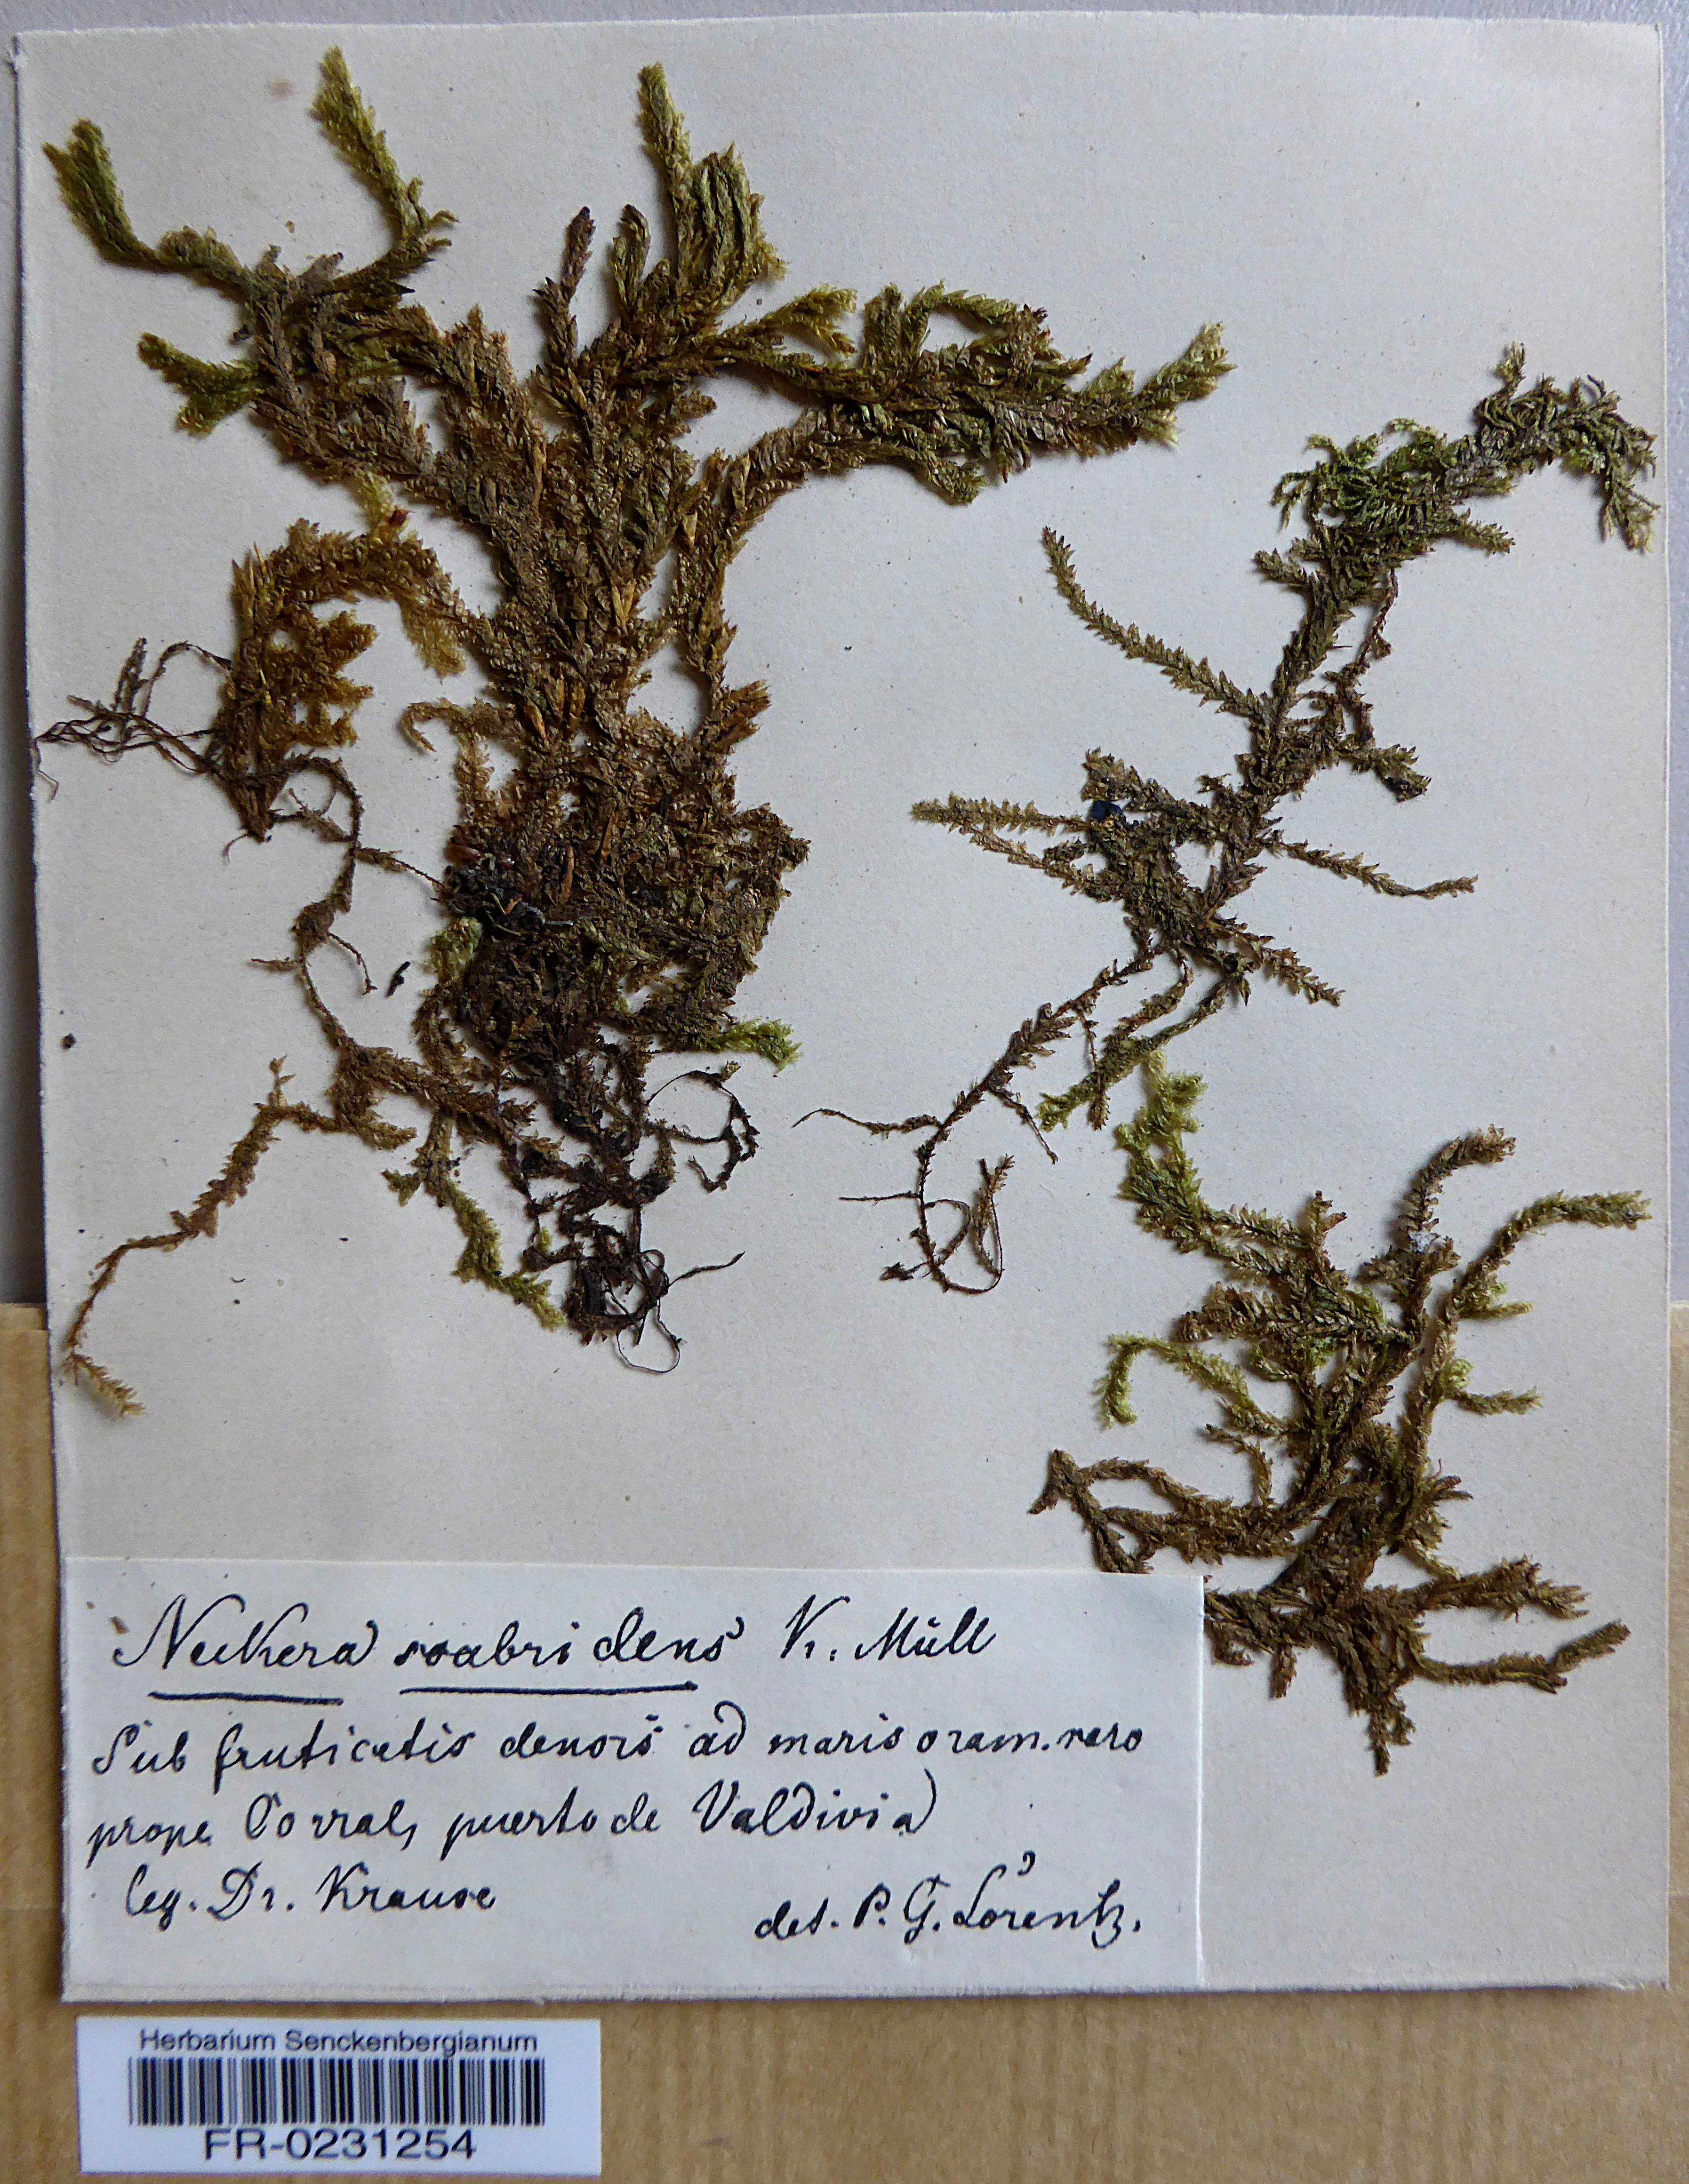 Neckera scabridens K. Müll
Sub fruticetis densis ad maris oram. raro
prope Corral, puerto de Valdivia
leg. Dr. Krause
det. P. G. Lorentz.
Herbarium Senckenbergianum
FR-0231254